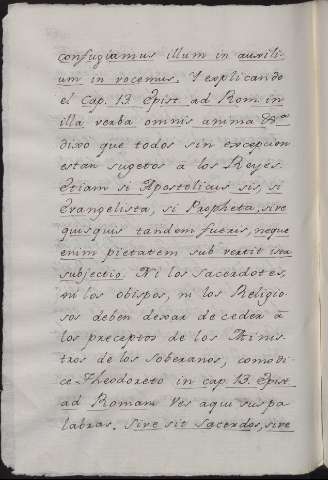 confugiamus illum in auxili-
um in vocemus. Y explicando
el Cap. 13 Epist ad Rom. in
illa verba omnis anima &ª
dixo que todos sin excepcion
estan sugetos â los Reyes.
Etiam si Apostolicus sis, si
Evangelista, si Propheta, sive
quisquis tandem fueris, neque
enim pietatem sub vertit ista
subjectio. Ni los Sacerdotes,
ni los obispos, ni los Religio-
sos deben dexar de ceder â
los preceptos de los Minis-
tros de los soberanos, como di-
ce Theodoreto in cap. 13. Epist
ad Roman Ves aqui sus pa-
labras. Sive sit Sacerdos, sive